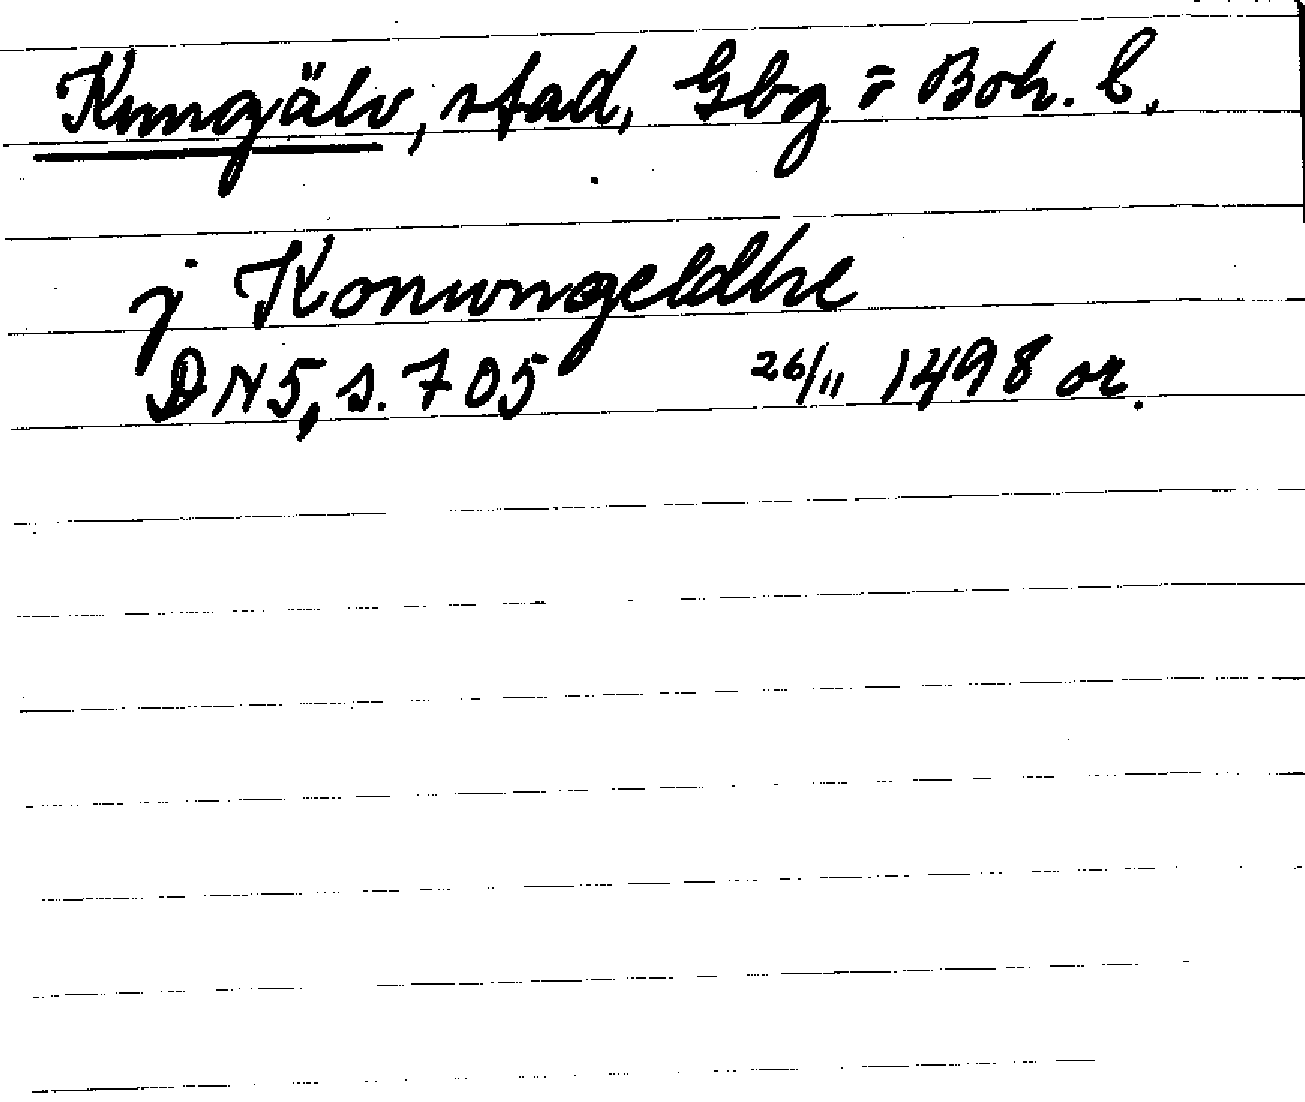 Kungälv, stad, Gbg o Boh. l.
j Konungeldhe
DN 5, s. 705 26/11 1498 or.